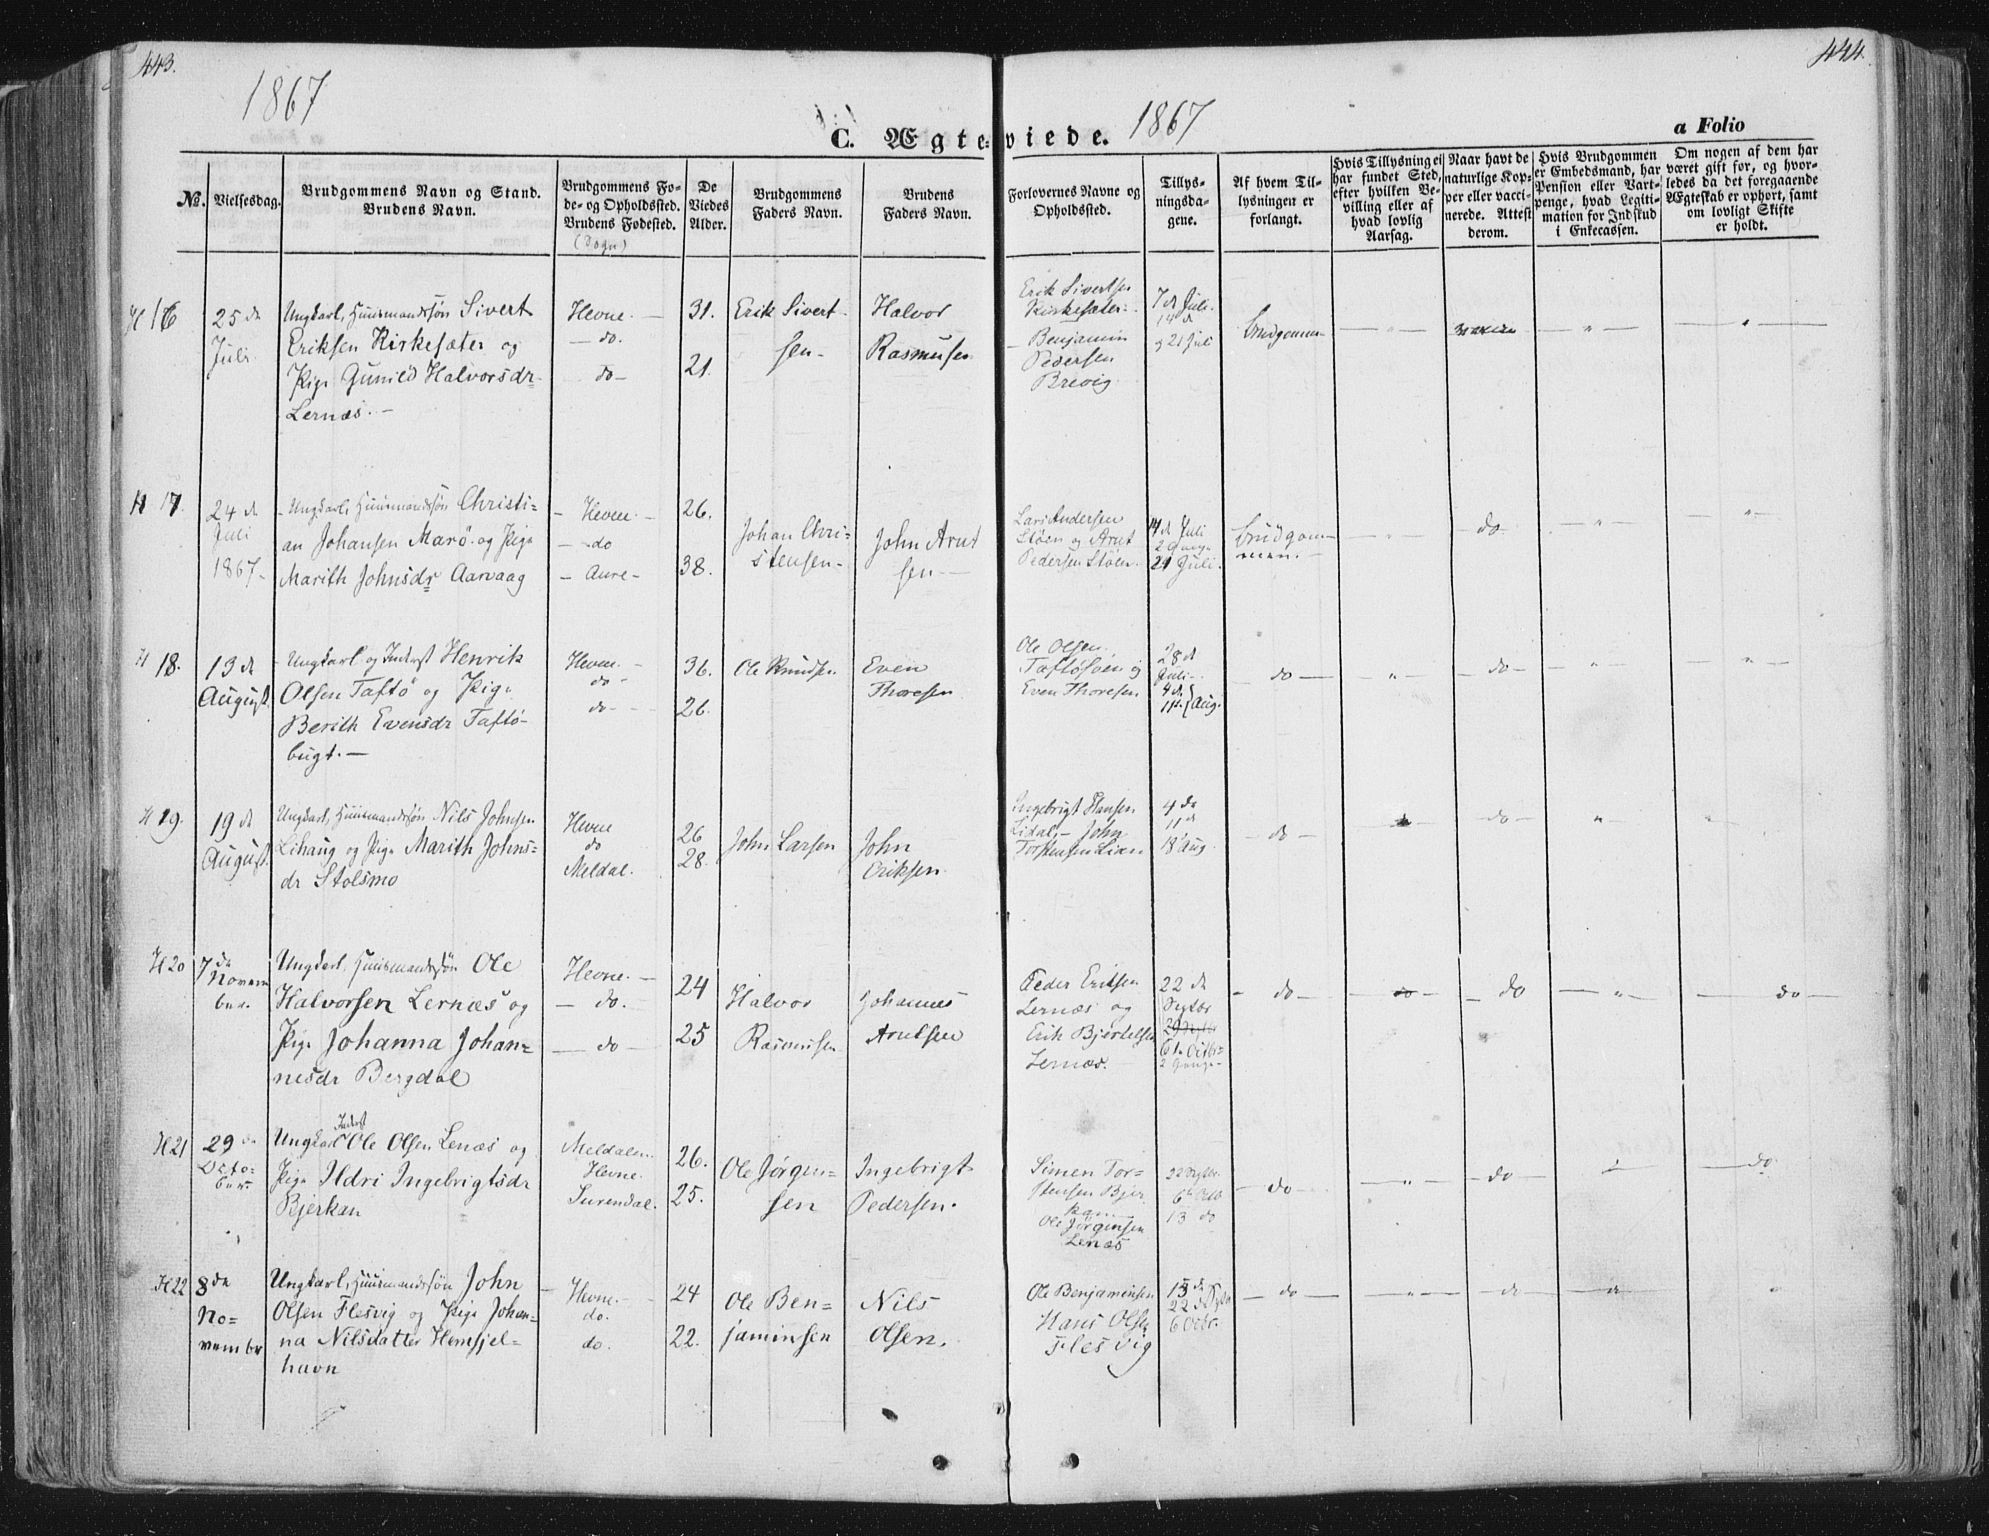 443.
444.
1867
1867
C. Ægteviede.
a Folio
No.
Vielsesdag.
Brudgommens Navn og Stand.
Brudens Navn.
Brudgommens Fø-
de- og Opholdssted.
Brudens Fødested.
(Sogn)
De
Viedes
Alder.
Brudgommens
Faders Navn.
Brudens
Faders Navn.
Forlovernes Navne og
Opholdssted.
Tillys-
ningsda-
gene.
Af hvem Til-
lysningen er
forlangt.
Hvis Tillysning ei
har fundet Sted,
efter hvilken Be-
villing eller af
hvad lovlig
Aarsag.
Naar havt de
naturlige Kop-
per eller vacci-
nerede. Attest
derom.
Hvis Brudgommen
er Embedsmand, har
Pension eller Vart-
penge, hvad Legiti-
mation for Indskud
i Enkecassen.
Om nogen af dem har
været gift før, og hvor-
ledes da det foregaaende
Ægteskab er ophørt, samt
om lovligt Skifte
er holdt.
H 16
25 de
Juli
Ungkarl, Huusmandssøn Sivert
Eriksen Kirkesæter og
Pige Gunild Halvorsdr
Lernæs. -
Hevne. -
- do.
do -
31.
21.
Erik Sivert-
sen -
Halvor
Rasmusen
Erik Sivertsen
Kirkesæter -
Benjamin
Pedersen
Brevig.
7 d Juli
14 d
og 21 Juli
brudgomm
- " -
- " -
"
H 17.
24 d
Juli
1867 -
- Ungkarl, Huusmandssøn Christi-
an Johansen Marø og Pige
Marith Johnsdr Aarvaag
- Hevne. -
- do
- Aure -
26.
38.
Johan Chri-
stensen -
John Arnt
sen -
Lars Andersen
Støen og Arnt
Pedersen Støen.
14 d Juli
21 Juli.
brudgom-
men. -
- " -
do
- " -
- " -
H 18.
13 d
August.
- Ungkarl og Inderst Henrik
Olsen Taftø og Pige
Berith Evensdr Taftø-
bugt. -
Hevne. -
do -
do -
36.
26.
Ole Knudsen
Even
Thoresen
Ole Olsen
Taftøsven og
Even Thoresen
28 d
Juli -
4 d
11 d } Aug.
- do -
- " -
- do -
- " -
- " -
H 19.
19 d
August.
Ungkarl, Huusmandssøn Nils Johnsen
Lihaug og Pige Marith Johns-
dr Stolsmo
Hevne
do
Meldal.
26
28.
John Larsen
John
Eriksen
Ingebrigt Hansen
Lidal, - John
Torstensen Lian
4 de
11 d
18 Aug.
- do -
- do -
"
H 20
7 de
Novem
ber.
Ungkarl, Huusmandssøn Ole
Halvorsen Lernæs og
Pige Johanna Johan-
nesdr Bergdal
Hevne. -
- do.
- do -
24
25
Halvor
Rasmusen
Johannes
Arntsen
Peder Eriksen
Lernæs og
Erik Bjertelsen
Lernæs.
22 de
Septbr
29 Septbr
6te Octbr
2 Gange -
- do -
do
- do
- " -
- do -
H 21
29 de
Octo-
ber
Inderst
Ungkarl Ole Olsen Lenæs og
Pige Ildri Ingebrigtsdr
Bjerkan
Meldalen
Hevne.
Surendal.
26.
25.
Ole Jørgen-
sen
Ingebrigt
Pedersen.
Simen Tor-
stensen Bjer
kan -
Ole Jørgensen
Lenæs
22 Septbr.
6te Octb
13 do
- do -
- " -
- do -
do
H 22
8 de
No-
vembr
Ungkarl, Huusmandssøn John
Olsen Flesvig og Pige Johan-
na Nilsdatter Hemsjel-
havn
- Hevne. -
do.
do.
24
22.
Ole Ben-
jaminsen
Nils
Olsen.
Ole Benjaminsen
Hans Olsen
Flesvig
15 de
22 d Septbr
6 Octbr.
- do -
- " -
"